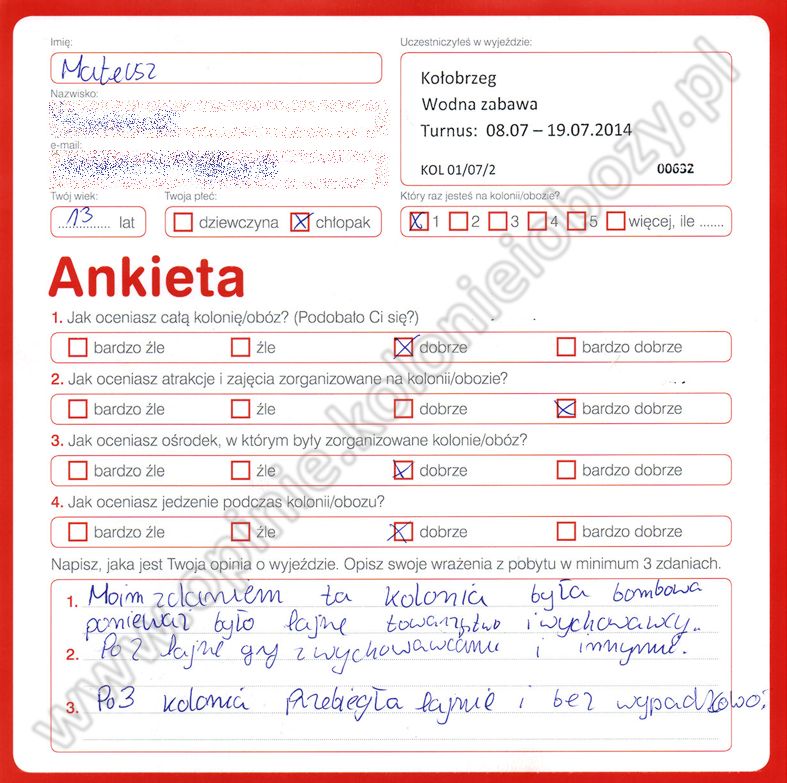 Imię:
Mateusz
Uczestniczyłeś w wyjeździe:
Kołobrzeg
Wodna zabawa
Turnus: 08.07 – 19.07.2014
KOL 01/07/2 00632
Nazwisko:
e-mail:
Twój wiek:
13 lat
Twoja płeć:
dziewczyna chłopak
Który raz jesteś na kolonii/obozie?
1 2 3 4 5 więcej, ile .......
Ankieta
1. Jak oceniasz całą kolonię/obóz? (Podobało Ci się?)
bardzo źle źle dobrze bardzo dobrze
2. Jak oceniasz atrakcje i zajęcia zorganizowane na kolonii/obozie?
bardzo źle źle dobrze bardzo dobrze
3. Jak oceniasz ośrodek, w którym były zorganizowane kolonie/obóz?
bardzo źle źle dobrze bardzo dobrze
4. Jak oceniasz jedzenie podczas kolonii/obozu?
bardzo źle źle dobrze bardzo dobrze
Napisz, jaka jest Twoja opinia o wyjeździe. Opisz swoje wrażenia z pobytu w minimum 3 zdaniach.
1. Moim zdaniem ta kolonia była bombowa
ponieważ było fajne towarzystwo i wychowawcy.
2. Po 2 fajne gry z wychowawcami i innymi.
3. Po 3 kolonia przebiegła fajnie i bez wypadkowo.
www.opinie.kolonieiobozy.pl